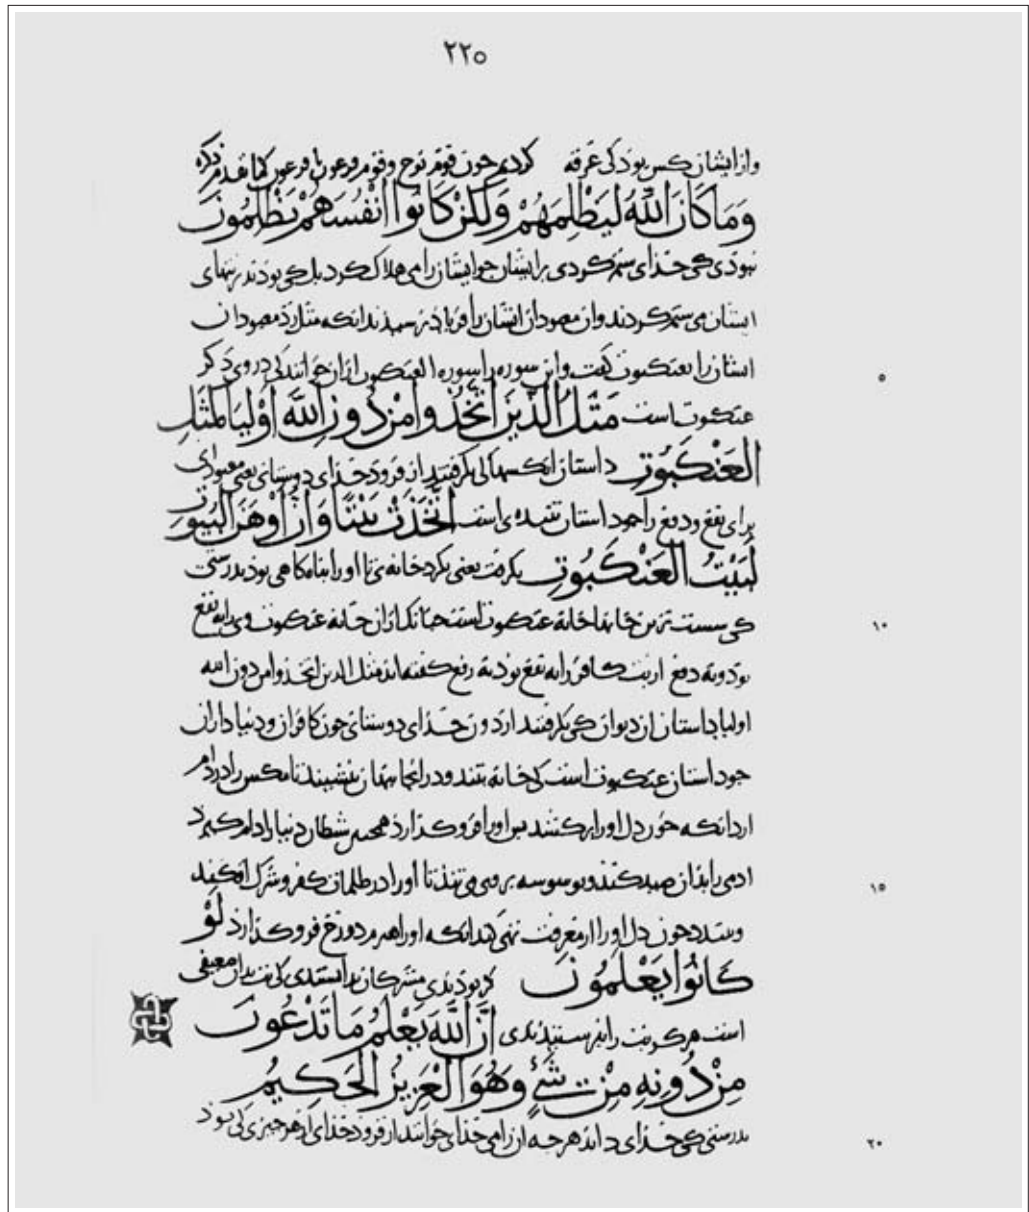 ٢٢٥
وازایشان کس بوذ کی غرقه کردیم چون قوم نوح و قوم فرعون با فرعون کما تقدم ذکره
وَمَا كَانَ اللَّهُ لِيَظْلِمَهُمْ وَلَكِنْ كَانُوا أَنْفُسَهُمْ يَظْلِمُونَ
نبوذی کی خذای ستم کردی بر ایشان چو ایشان را می هلاک کرد بل کی بوذند تنهای
ایشان می ستم کردند وان معبودان ایشان را فریاذ نرسیدند انکه مثل زذ معبودان
ایشان را بعنکبوت گفت و این سوره را سورة العنکبوت ازان خوانند کی در وی ذکر
٥
عنکبوت است مَثَلُ الَّذِينَ اتَّخَذُوا مِنْ دُونِ اللَّهِ أَوْلِيَاءَ كَمَثَلِ
الْعَنْكَبُوتِ داستان انکسهای کی بگرفتند از فروذ خذای دوستانی یعنی معبودانی
برای نفع و دفع را چو داستان تننده ی است اتَّخَذَتْ بَيْتًا وَإِنَّ أَوْهَنَ الْبُيُوتِ
لَبَيْتُ الْعَنْكَبُوتِ بگرفت یعنی بکرد خانه ی تا او را پناه کاهی بوذ بدرستی
کی سست ترین خانها خانه عنکبوت است چنانک ازان خانه عنکبوت وی را نه نفع
١٠
بوذ و نه دفع از بت کافر را نه نفع بوذ نه رفع گفته اند مثل الذین اتخذوا من دون الله
اولیا داستان ان دیوان کی بگرفتند از دون خذای دوستانی چون کافران و دنیا داران
چو داستان عنکبوت است کی خانه تند و در انجا پنهان بنشیند تا مگس را در دام
ارد انکه خون دل او را بر کشند پس او را فرو گذارذ همچنین شیطان دنیا را دام گیرذ
ادمی را بذان صید کند و بوسوسه بر وی می تنذ تا او را در ظلمات کفر و شرک افگند
١٥
چون دل او را از معرفت تهی کند انکه او را هیزم دوزخ فرو گذارذ لَوْ
كَانُوا يَعْلَمُونَ گر بوذندی مشرکان بدانستندی کی بت بدان ضعیفی
است هرگز بت را نپرستیذندی إِنَّ اللَّهَ يَعْلَمُ مَا تَدْعُونَ
مِنْ دُونِهِ مِنْ شَيْءٍ وَهُوَ الْعَزِيزُ الْحَكِيمُ
بدرستی کی خذای داند هر چه ان را می خذای خوانند از فروذ خذای از هر چیزی کی بوذ
٢٠